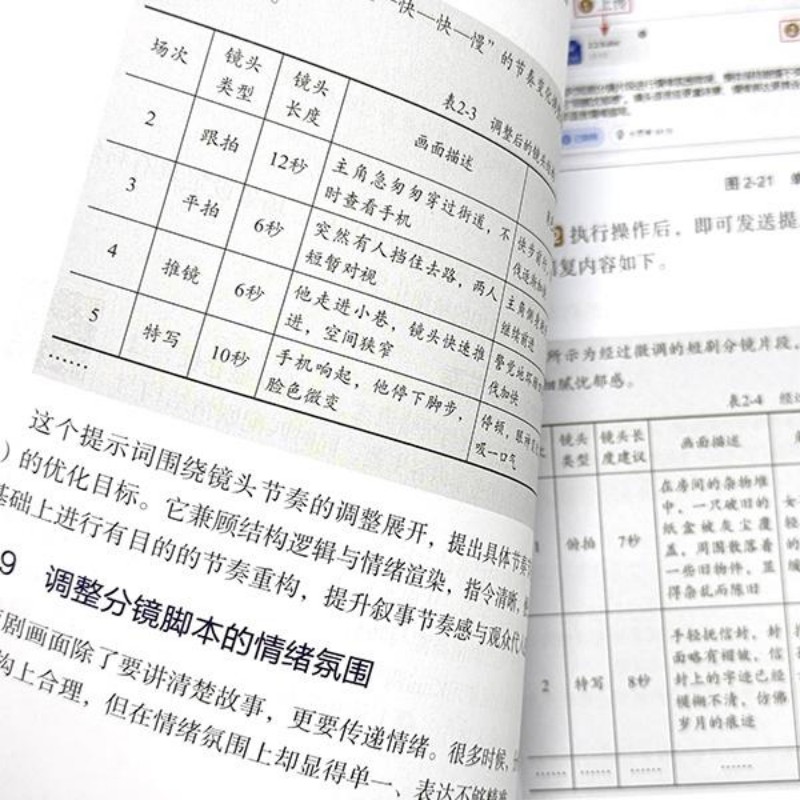 快—快—慢”的节奏变化
表2-3 调整后的镜头
场次 镜头类型 镜头长度 画面描述
2 跟拍 12秒 主角急匆匆穿过街道，不
时查看手机
3 平拍 6秒 突然有人挡住去路，两人
短暂对视
4 推镜 6秒 他走进小巷，镜头快速推
进，空间狭窄
5 特写 10秒 手机响起，他停下脚步，
脸色微变
停顿，眼神
吸一口气
继续前进
伐加快
……
这个提示词围绕镜头节奏的调整展开，提出具体节奏
）的优化目标。它兼顾结构逻辑与情绪渲染，指令清晰，
基础上进行有目的的节奏重构，提升叙事节奏感与观众代
9 调整分镜脚本的情绪氛围
剧画面除了要讲清楚故事，更要传递情绪。很多时候，
构上合理，但在情绪氛围上却显得单一、表达不够精准
上传
图 2-21
2 执行操作后，即可发送提
回复内容如下。
所示为经过微调的短剧分镜片段，
细腻忧郁感。
表2-4
镜头类型 镜头长度建议 画面描述
俯拍 7秒 在房间的杂物堆
中，一只破旧的
纸盒被灰尘覆
盖，周围散落着
一些旧物件，显
得杂乱而陈旧
2 特写 8秒 手轻抚信封，封
面略有褶皱，信
封上的字迹已经
模糊不清，仿佛
岁月的痕迹
…… …… …… ……